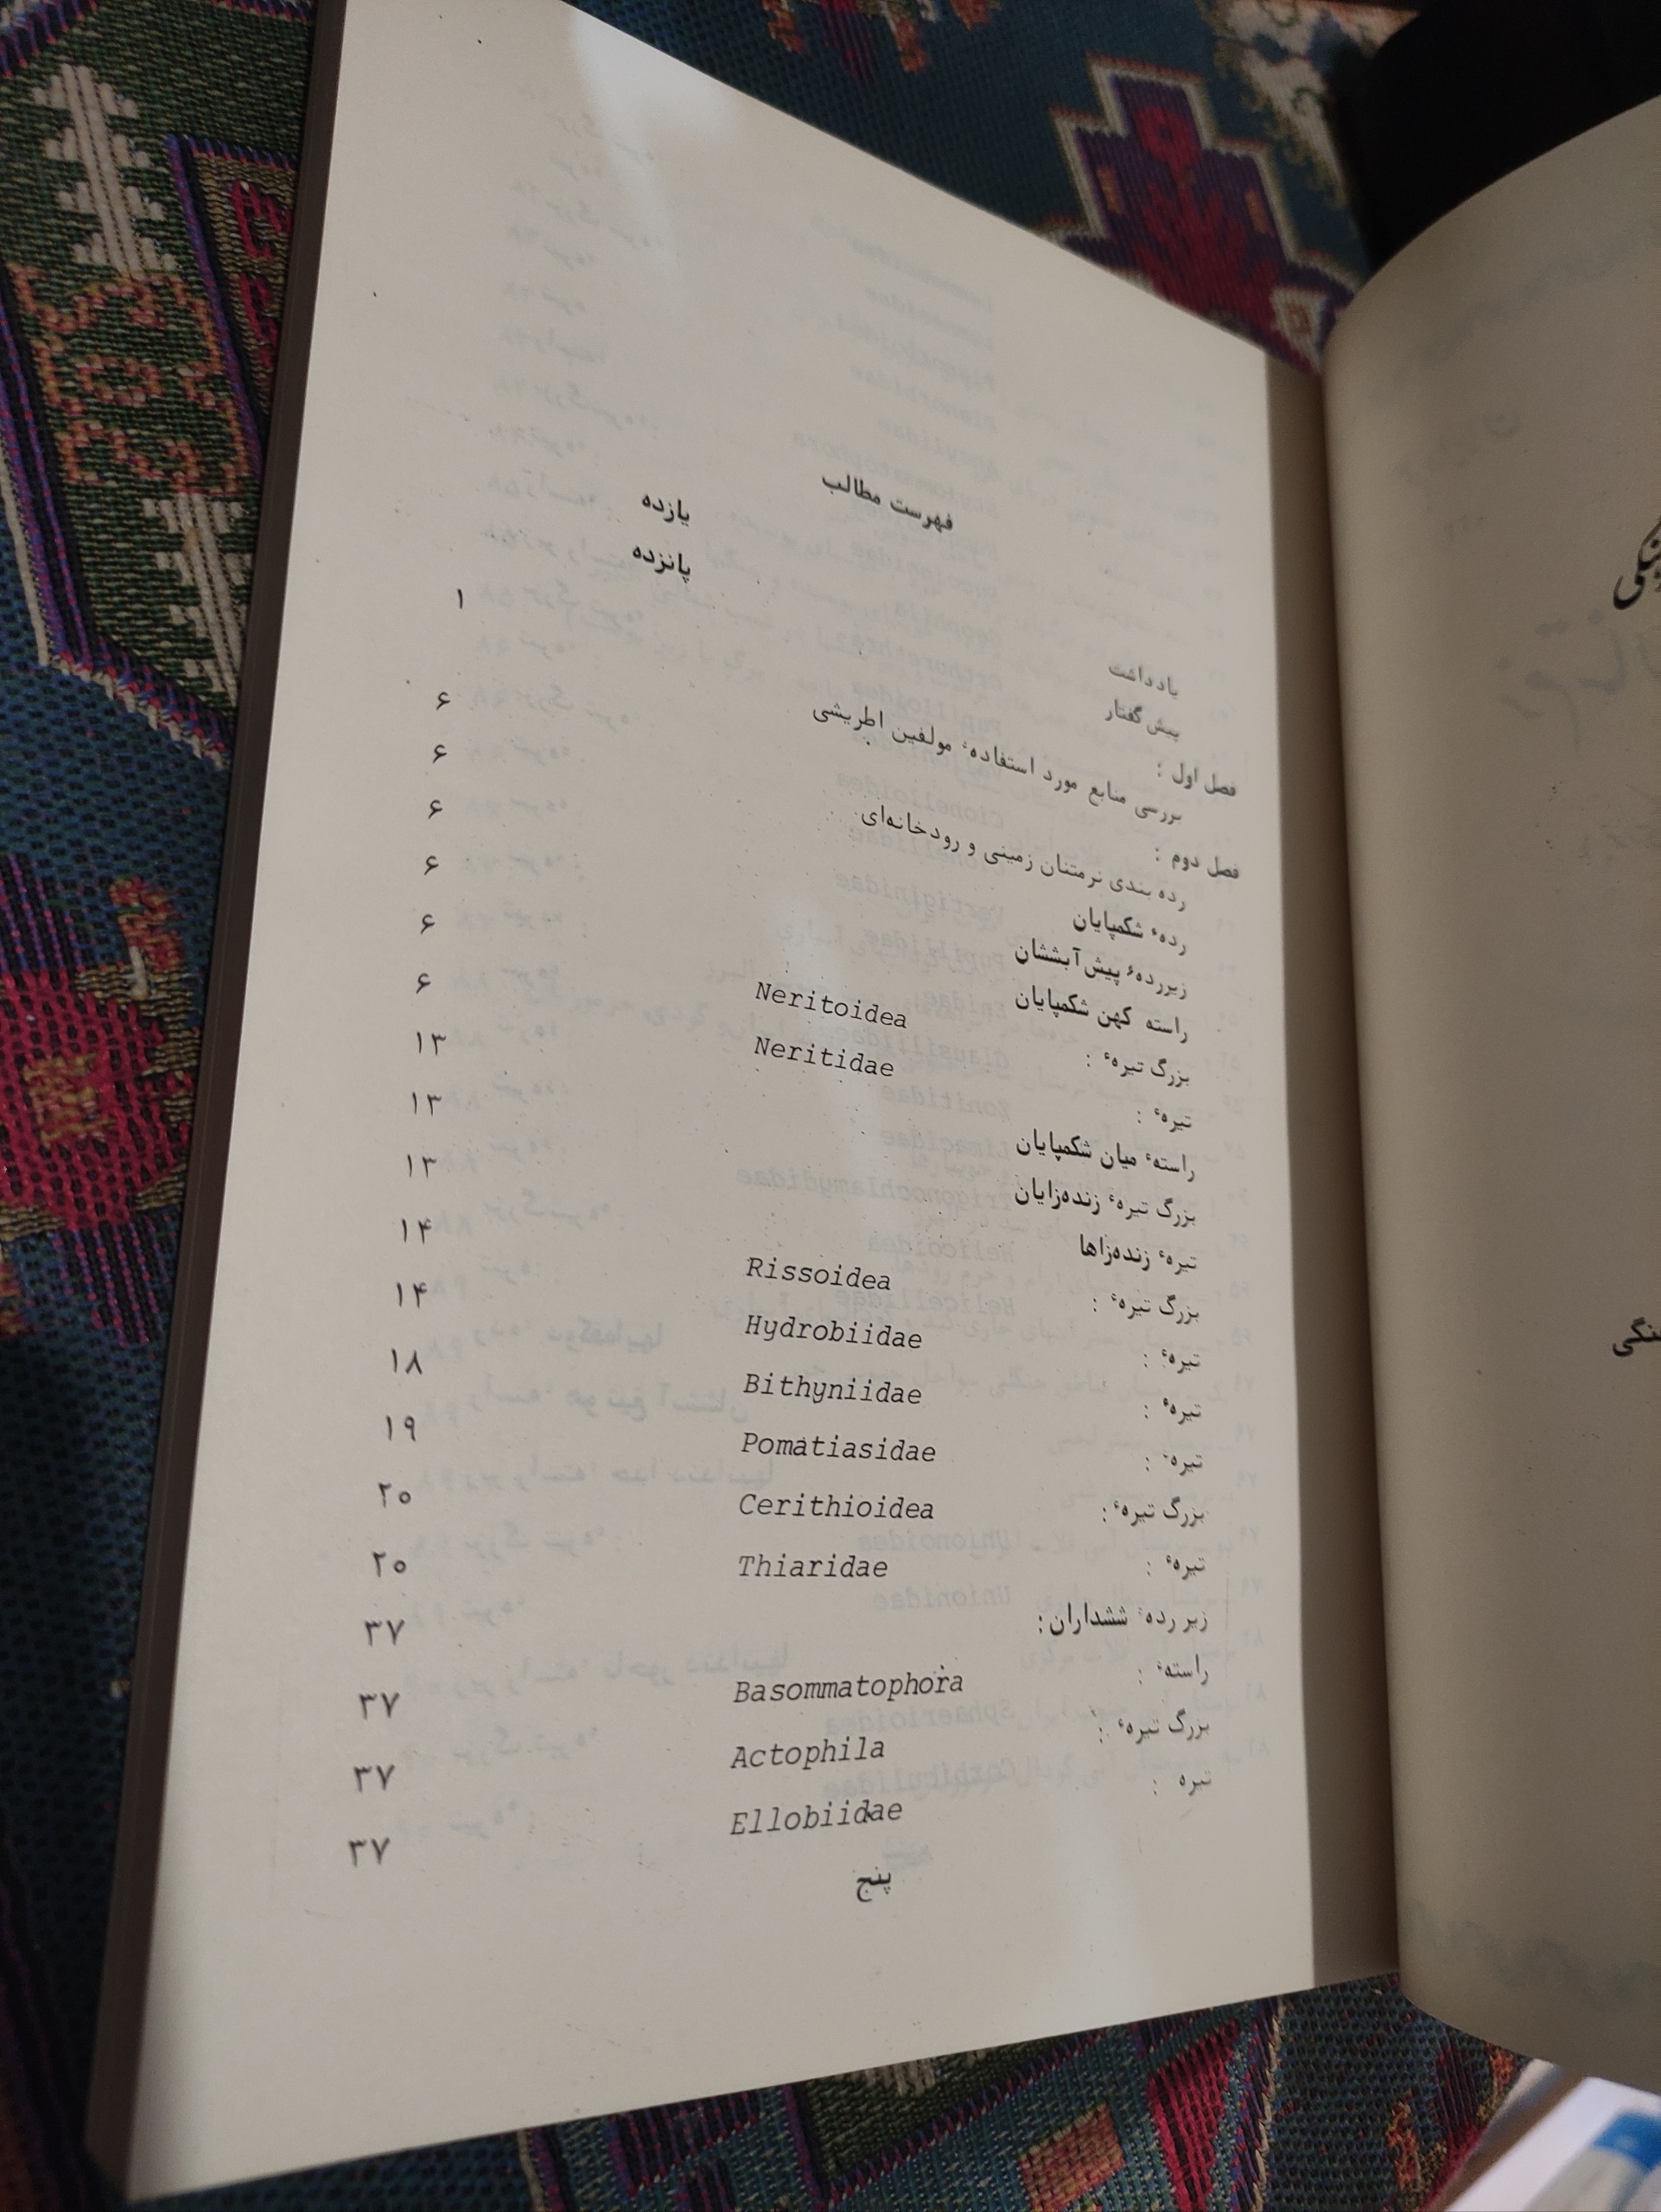 فهرست مطالب
یادداشت یازده
پیش‌گفتار پانزده
فصل اول :
بررسی منابع مورد استفادهٔ مولفین اطریشی ۱
فصل دوم :
رده بندی نرمتنان زمینی و رودخانه‌ای ۶
ردهٔ شکمپایان ۶
زیرردهٔ پیش‌آبششان ۶
راسته کهن شکمپایان ۶
بزرگ تیرهٔ : Neritoidea ۶
تیرهٔ : Neritidae ۶
راستهٔ میان شکمپایان ۱۳
بزرگ تیرهٔ زنده‌زایان ۱۳
تیرهٔ زنده‌زاها ۱۳
بزرگ تیرهٔ : Rissoidea ۱۴
تیرهٔ : Hydrobiidae ۱۴
تیرهٔ : Bithyniidae ۱۸
تیرهٔ : Pomatiasidae ۱۹
بزرگ تیرهٔ : Cerithioidea ۲۰
تیرهٔ : Thiaridae ۲۰
زیر ردهٔ ششداران : ۳۷
راستهٔ : Basommatophora ۳۷
بزرگ تیرهٔ : Actophila ۳۷
تیره : Ellobiidae ۳۷
پنج